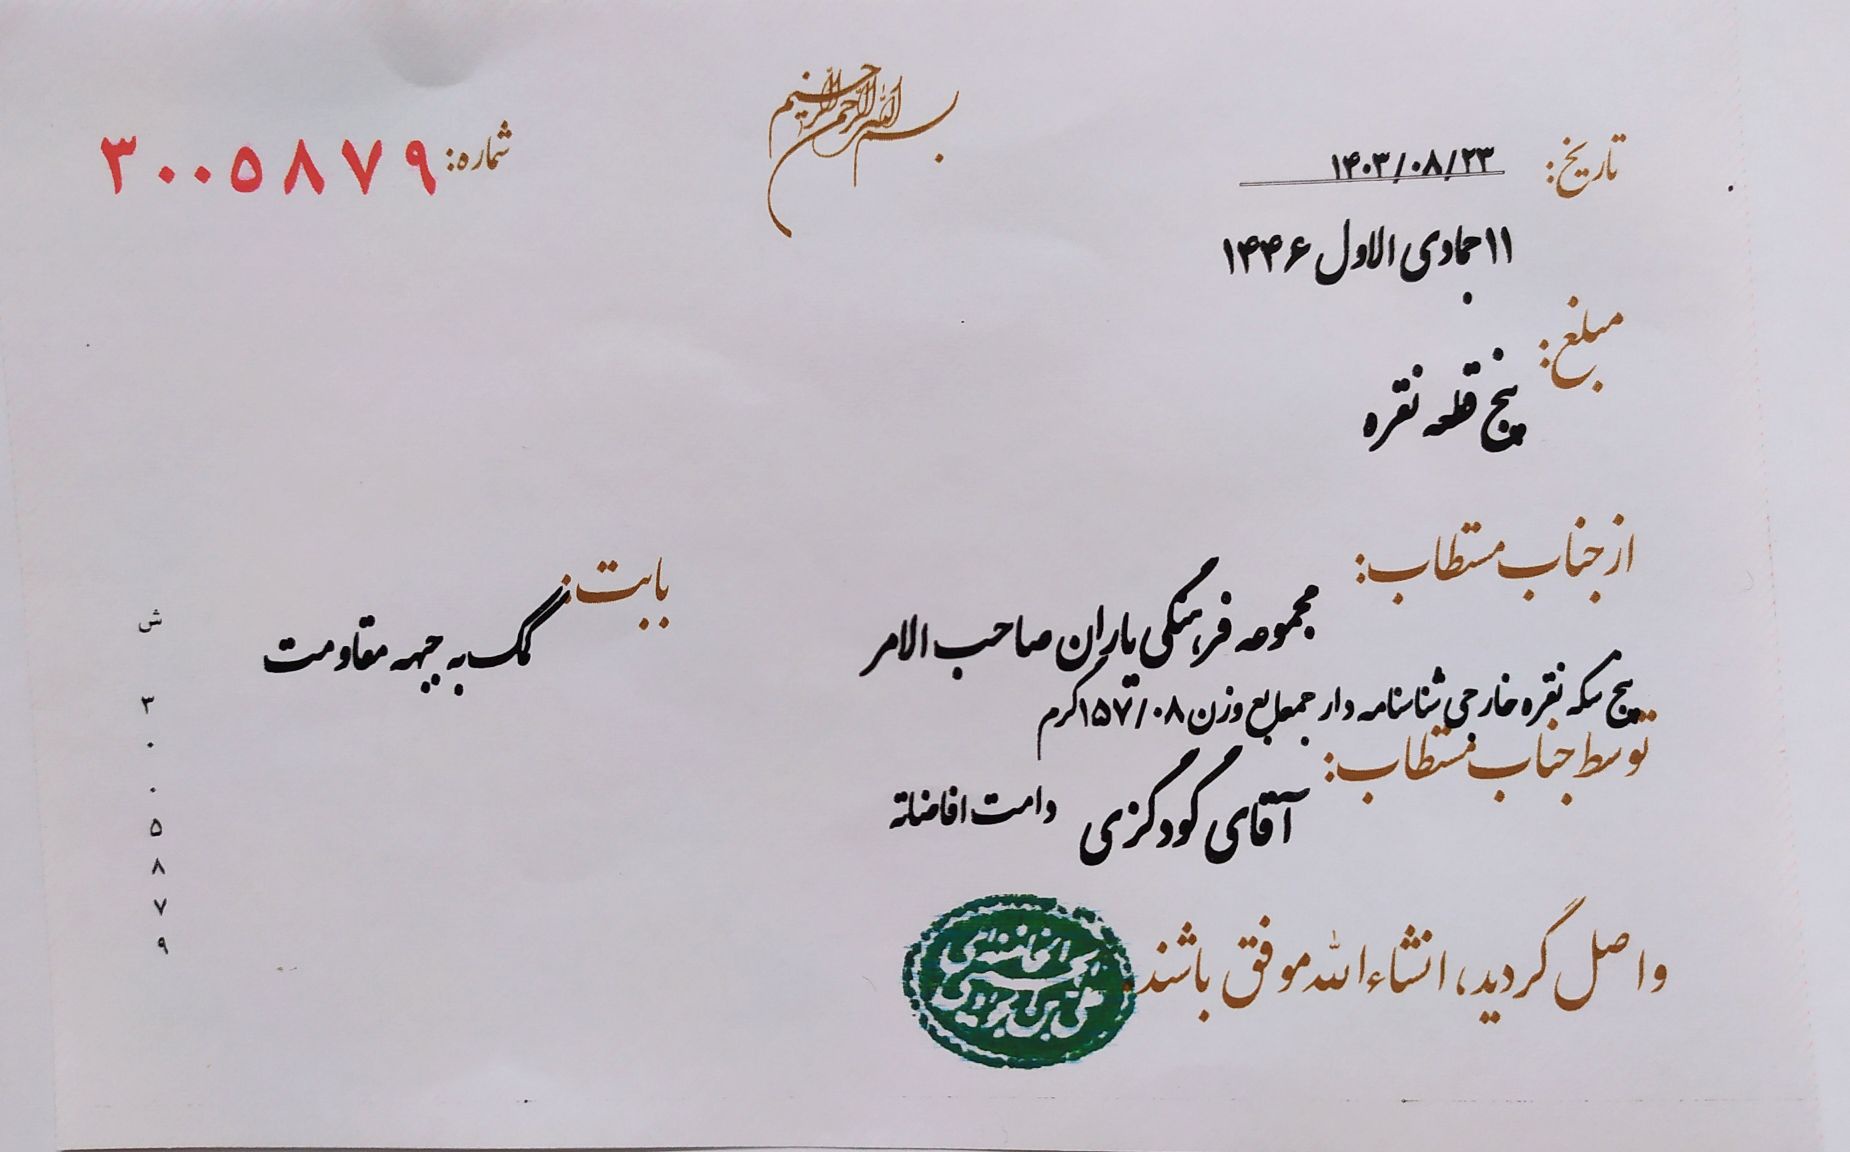 بسم الله الرحمن الرحیم
تاریخ: ۱۴۰۳/۰۸/۲۳
شماره: ۳۰۰۵۸۷۹
۱۱ جمادی الاول ۱۴۴۶
مبلغ:
پنج قطعه نقره
از جناب مستطاب:
مجموعه فرهنگی یاران صاحب الامر
بابت:
کمک به جبهه مقاومت
پنج سکه نقره خارجی شناسنامه دار جمعا به وزن ۱۵۷/۰۸ گرم
توسط جناب مستطاب:
آقای گودگزی دامت افاضاته
واصل گردید، انشاءالله موفق باشند.
علی بن جواد الحسینی الخامنه‌ای
ش
۳
۰
۰
۵
۸
۷
۹